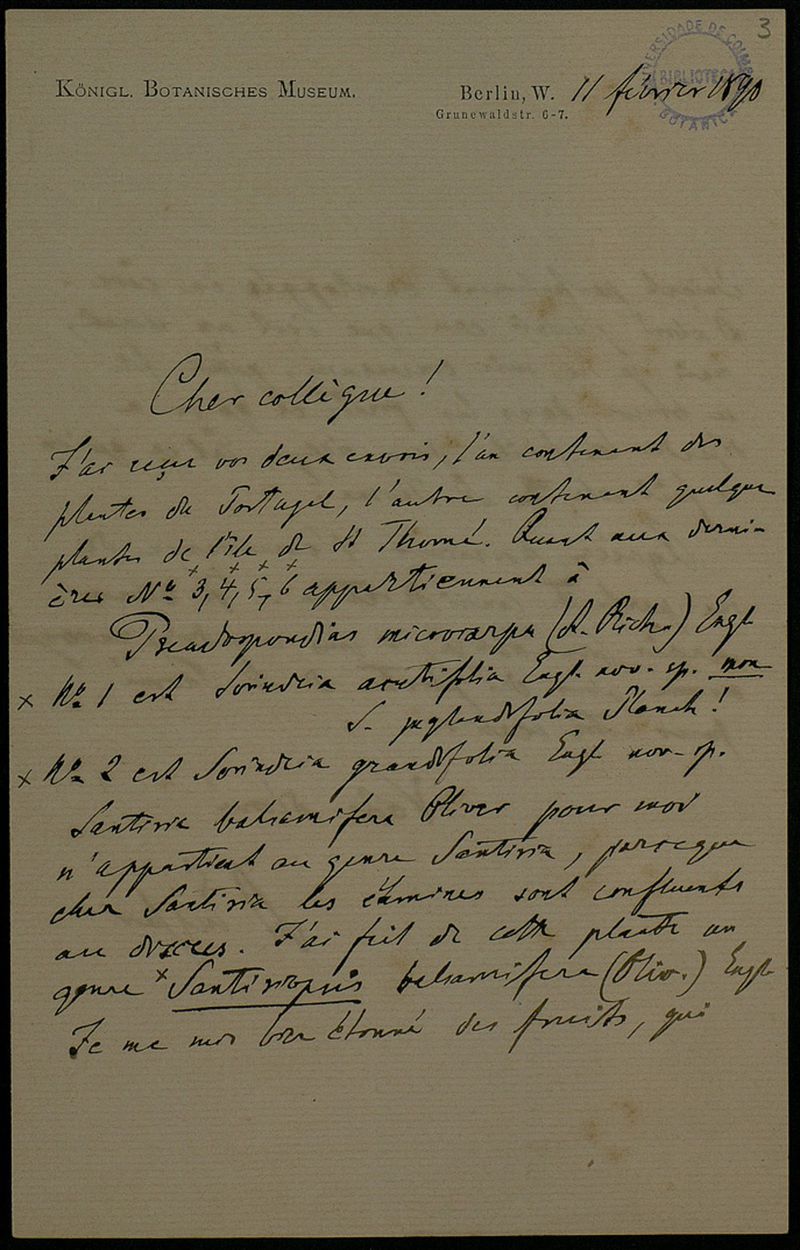 3
UNIVERSIDADE DE COIMBRA
BIBLIOTECA
BOTANICA
KÖNIGL. BOTANISCHES MUSEUM.
Berlin, W. 11 février 1890
Grunewaldstr. 6-7.
Cher collègue!
J'ai reçu vos deux envois, l'un contenant des
plantes du Portugal, l'autre contenant quelque
plantes de l'île de St Thomé. Quant aux derni-
ères No 3, 4, 5, 6 appartiennent à
Pseudospondias microcarpa (A. Rich.) Engl
× No 1 est Sorindeia acutifolia Engl. nov. sp. non
S. juglandifolia Planch!
× No 2 est Sorindeia grandifolia Engl nov. sp.
Santiria balsamifera Oliver pour moi
n'appartient au genre Santiria, parceque
chez Santiria les étamines sont confluents
au discus. J'ai fait de cette plante un
genre × Santiriopsis balsamifera (Oliv.) Engl
Je me suis bien étonné des fruits, qui